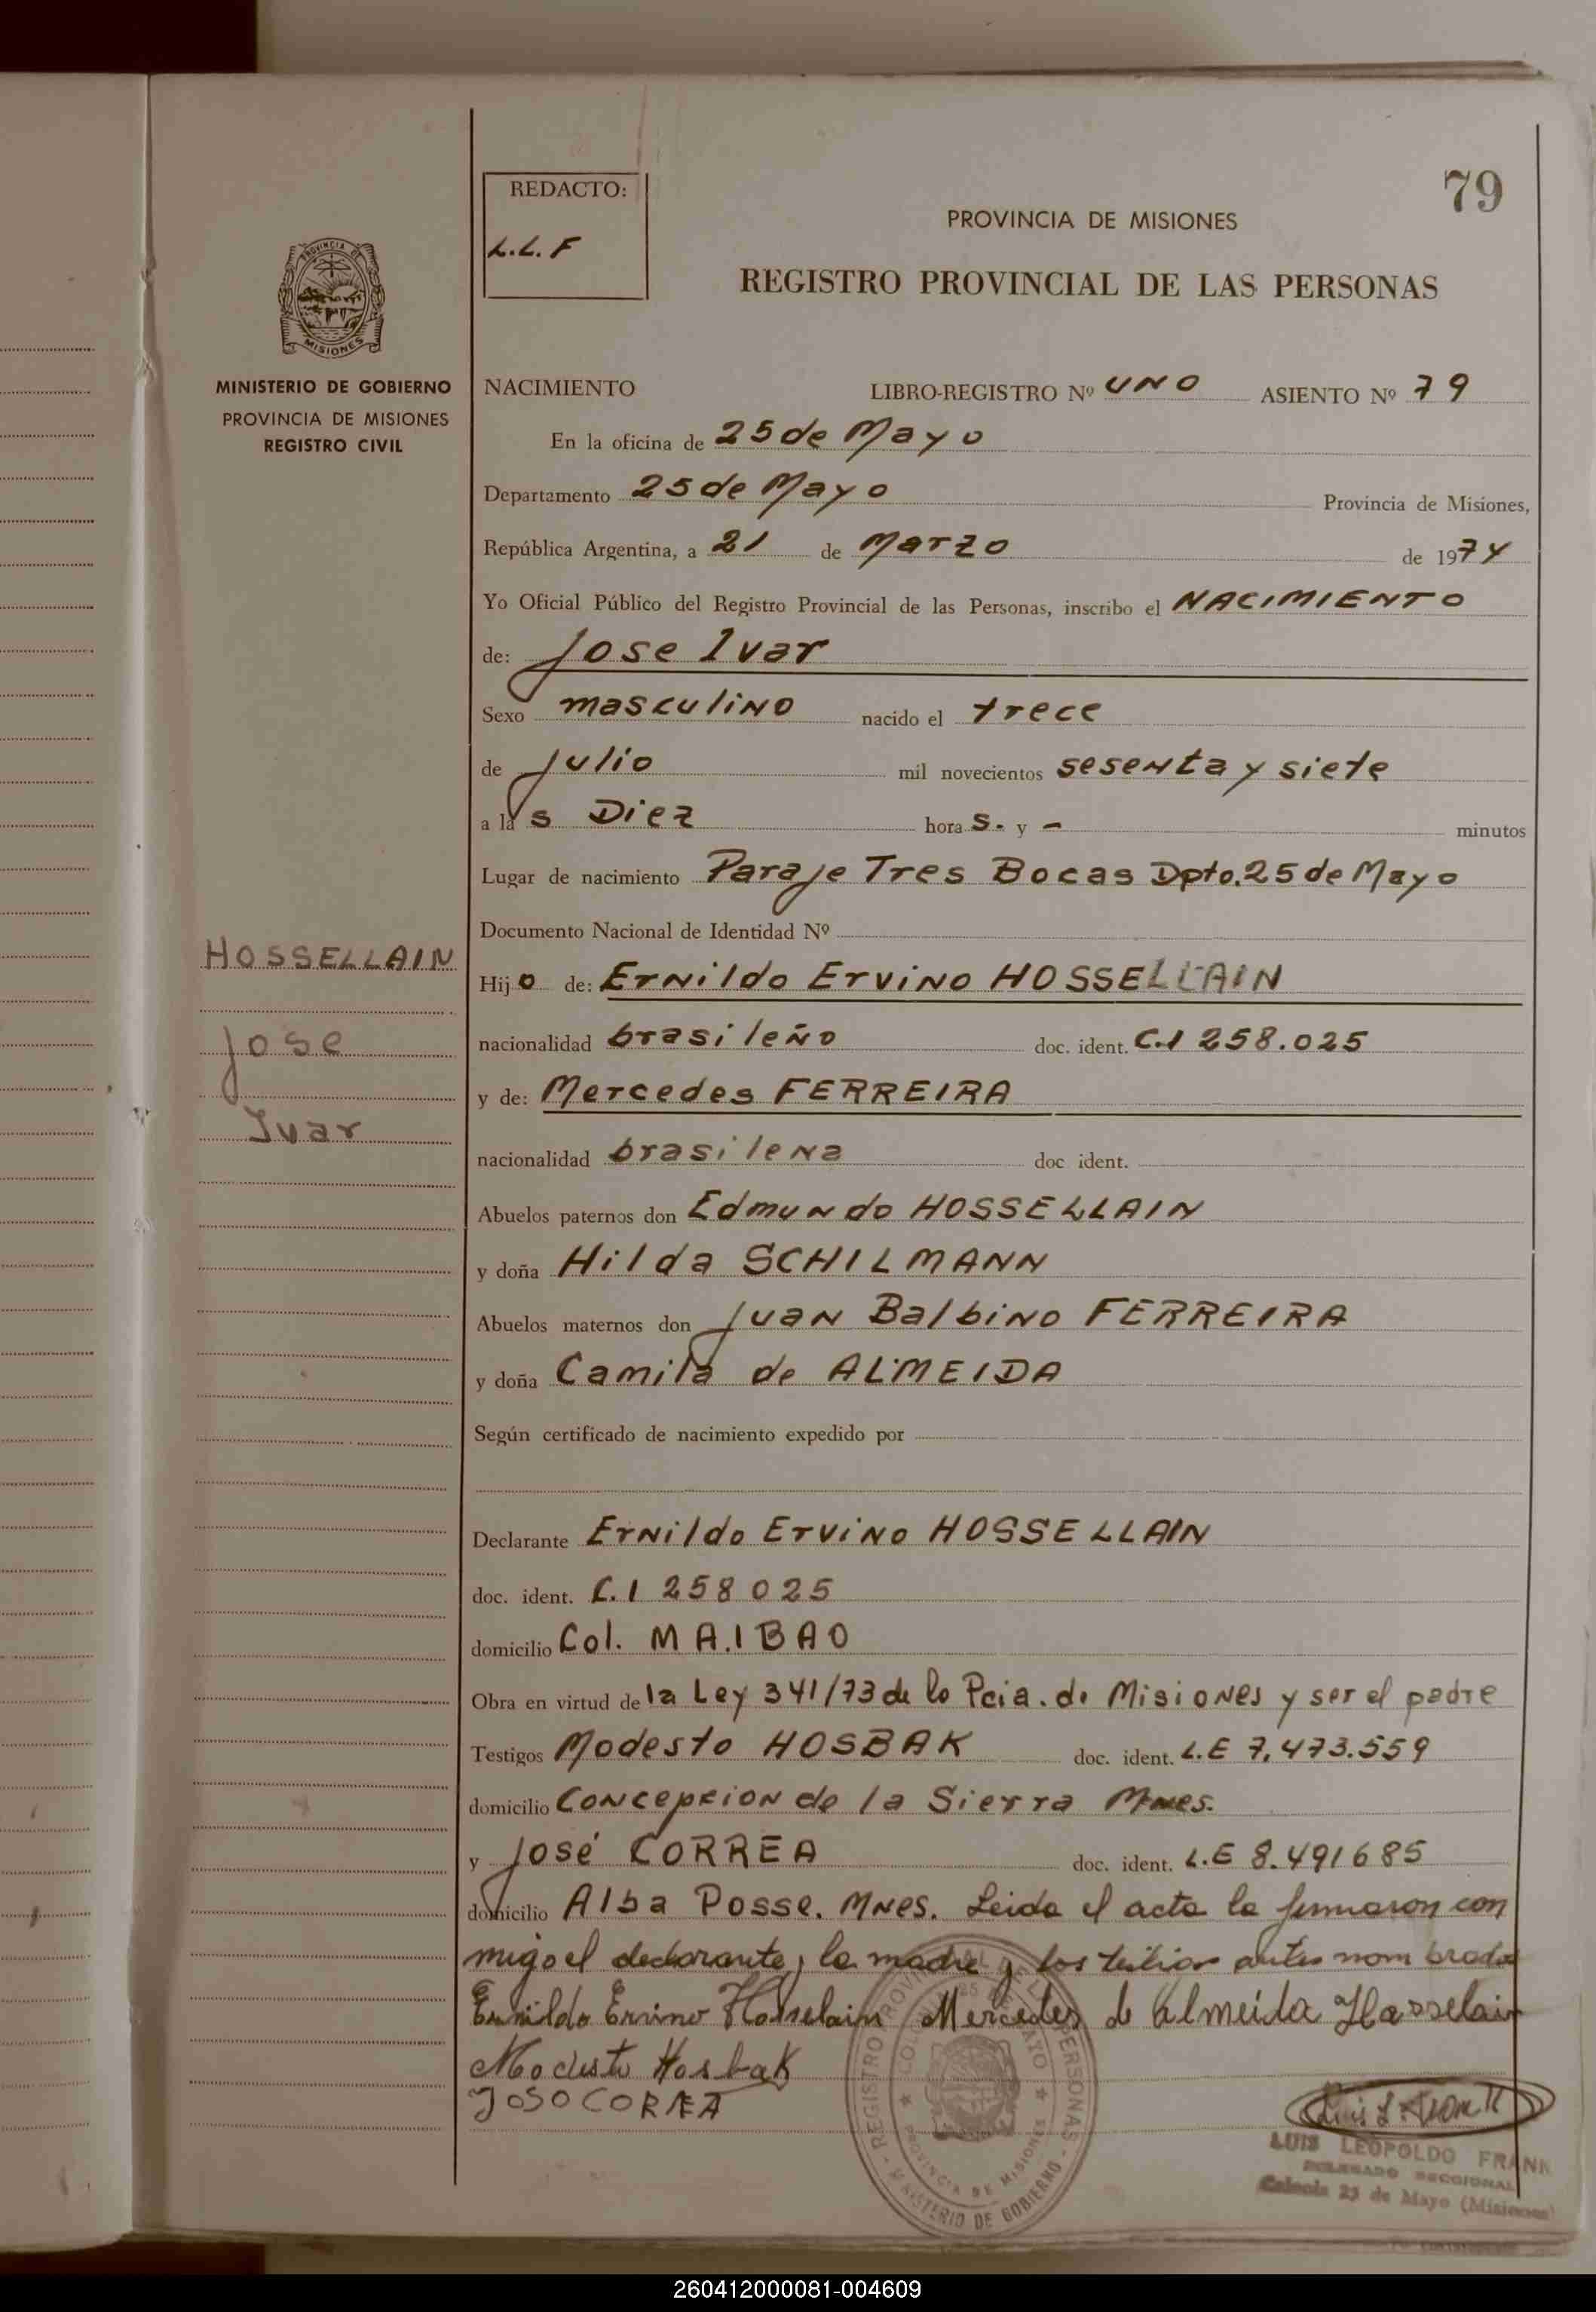 79
REDACTO:
L.L.F
PROVINCIA DE MISIONES
REGISTRO PROVINCIAL DE LAS PERSONAS
PROVINCIA DE
MISIONES
MINISTERIO DE GOBIERNO
PROVINCIA DE MISIONES
REGISTRO CIVIL
NACIMIENTO LIBRO-REGISTRO Nº UNO ASIENTO Nº 79
En la oficina de 25 de Mayo
Departamento 25 de Mayo Provincia de Misiones,
República Argentina, a 21 de Marzo de 1974
Yo Oficial Público del Registro Provincial de las Personas, inscribo el NACIMIENTO
de: Jose Ivar
Sexo masculino nacido el trece
de Julio mil novecientos sesenta y siete
a las Diez horas. y - minutos
Lugar de nacimiento Paraje Tres Bocas Dpto. 25 de Mayo
Documento Nacional de Identidad Nº
HOSSELLAIN
Jose
Ivar
Hijo de: Ernildo Ervino HOSSELLAIN
nacionalidad brasileño doc. ident. C.I 258.025
y de: Mercedes FERREIRA
nacionalidad brasilena doc ident.
Abuelos paternos don Edmundo HOSSELLAIN
y doña Hilda SCHILMANN
Abuelos maternos don Juan Balbino FERREIRA
y doña Camila de ALMEIDA
Según certificado de nacimiento expedido por
Declarante Ernildo Ervino HOSSELLAIN
doc. ident. C.I 258025
domicilio Col. MA.IBAO
Obra en virtud de la Ley 341/73 de la Pcia. de Misiones y ser el padre
Testigos Modesto HOSBAK doc. ident. L.E 7.473.559
domicilio Concepcion de la Sierra Mnes.
y José CORREA doc. ident. L.E 8.491685
domicilio Alba Posse. Mnes. Leida el acta la firmaron con
migo el declarante, la madre y los testigos antes nombrados
Ernildo Ervino Hosselain Mercedes de Almeida Hasselain
Modesto Hosbak
JOSO CORREA
REGISTRO PROVINCIAL DE LAS PERSONAS
PROVINCIA DE MISIONES
MINISTERIO DE GOBIERNO
LUIS LEOPOLDO FRANK
DELEGADO SECCIONAL
Colonia 25 de Mayo (Misiones)
260412000081-004609